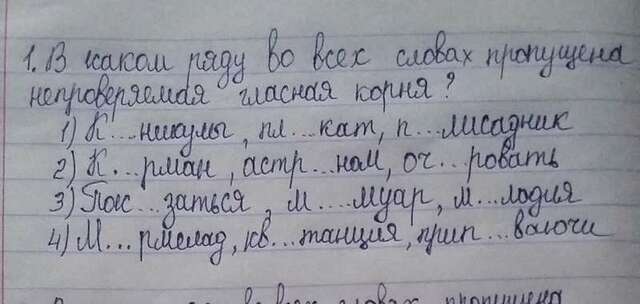 1. В каком ряду во всех словах пропущена
непроверяемая гласная корня?
1) К...никулы, пл...кат, п...лисадник
2) К...рман, астр...ном, оч...ровать
3) Пок...заться, м....муар, м...лодия
4) М...рмелад, кв...танция, прип...волочи
во всех словах пропущена